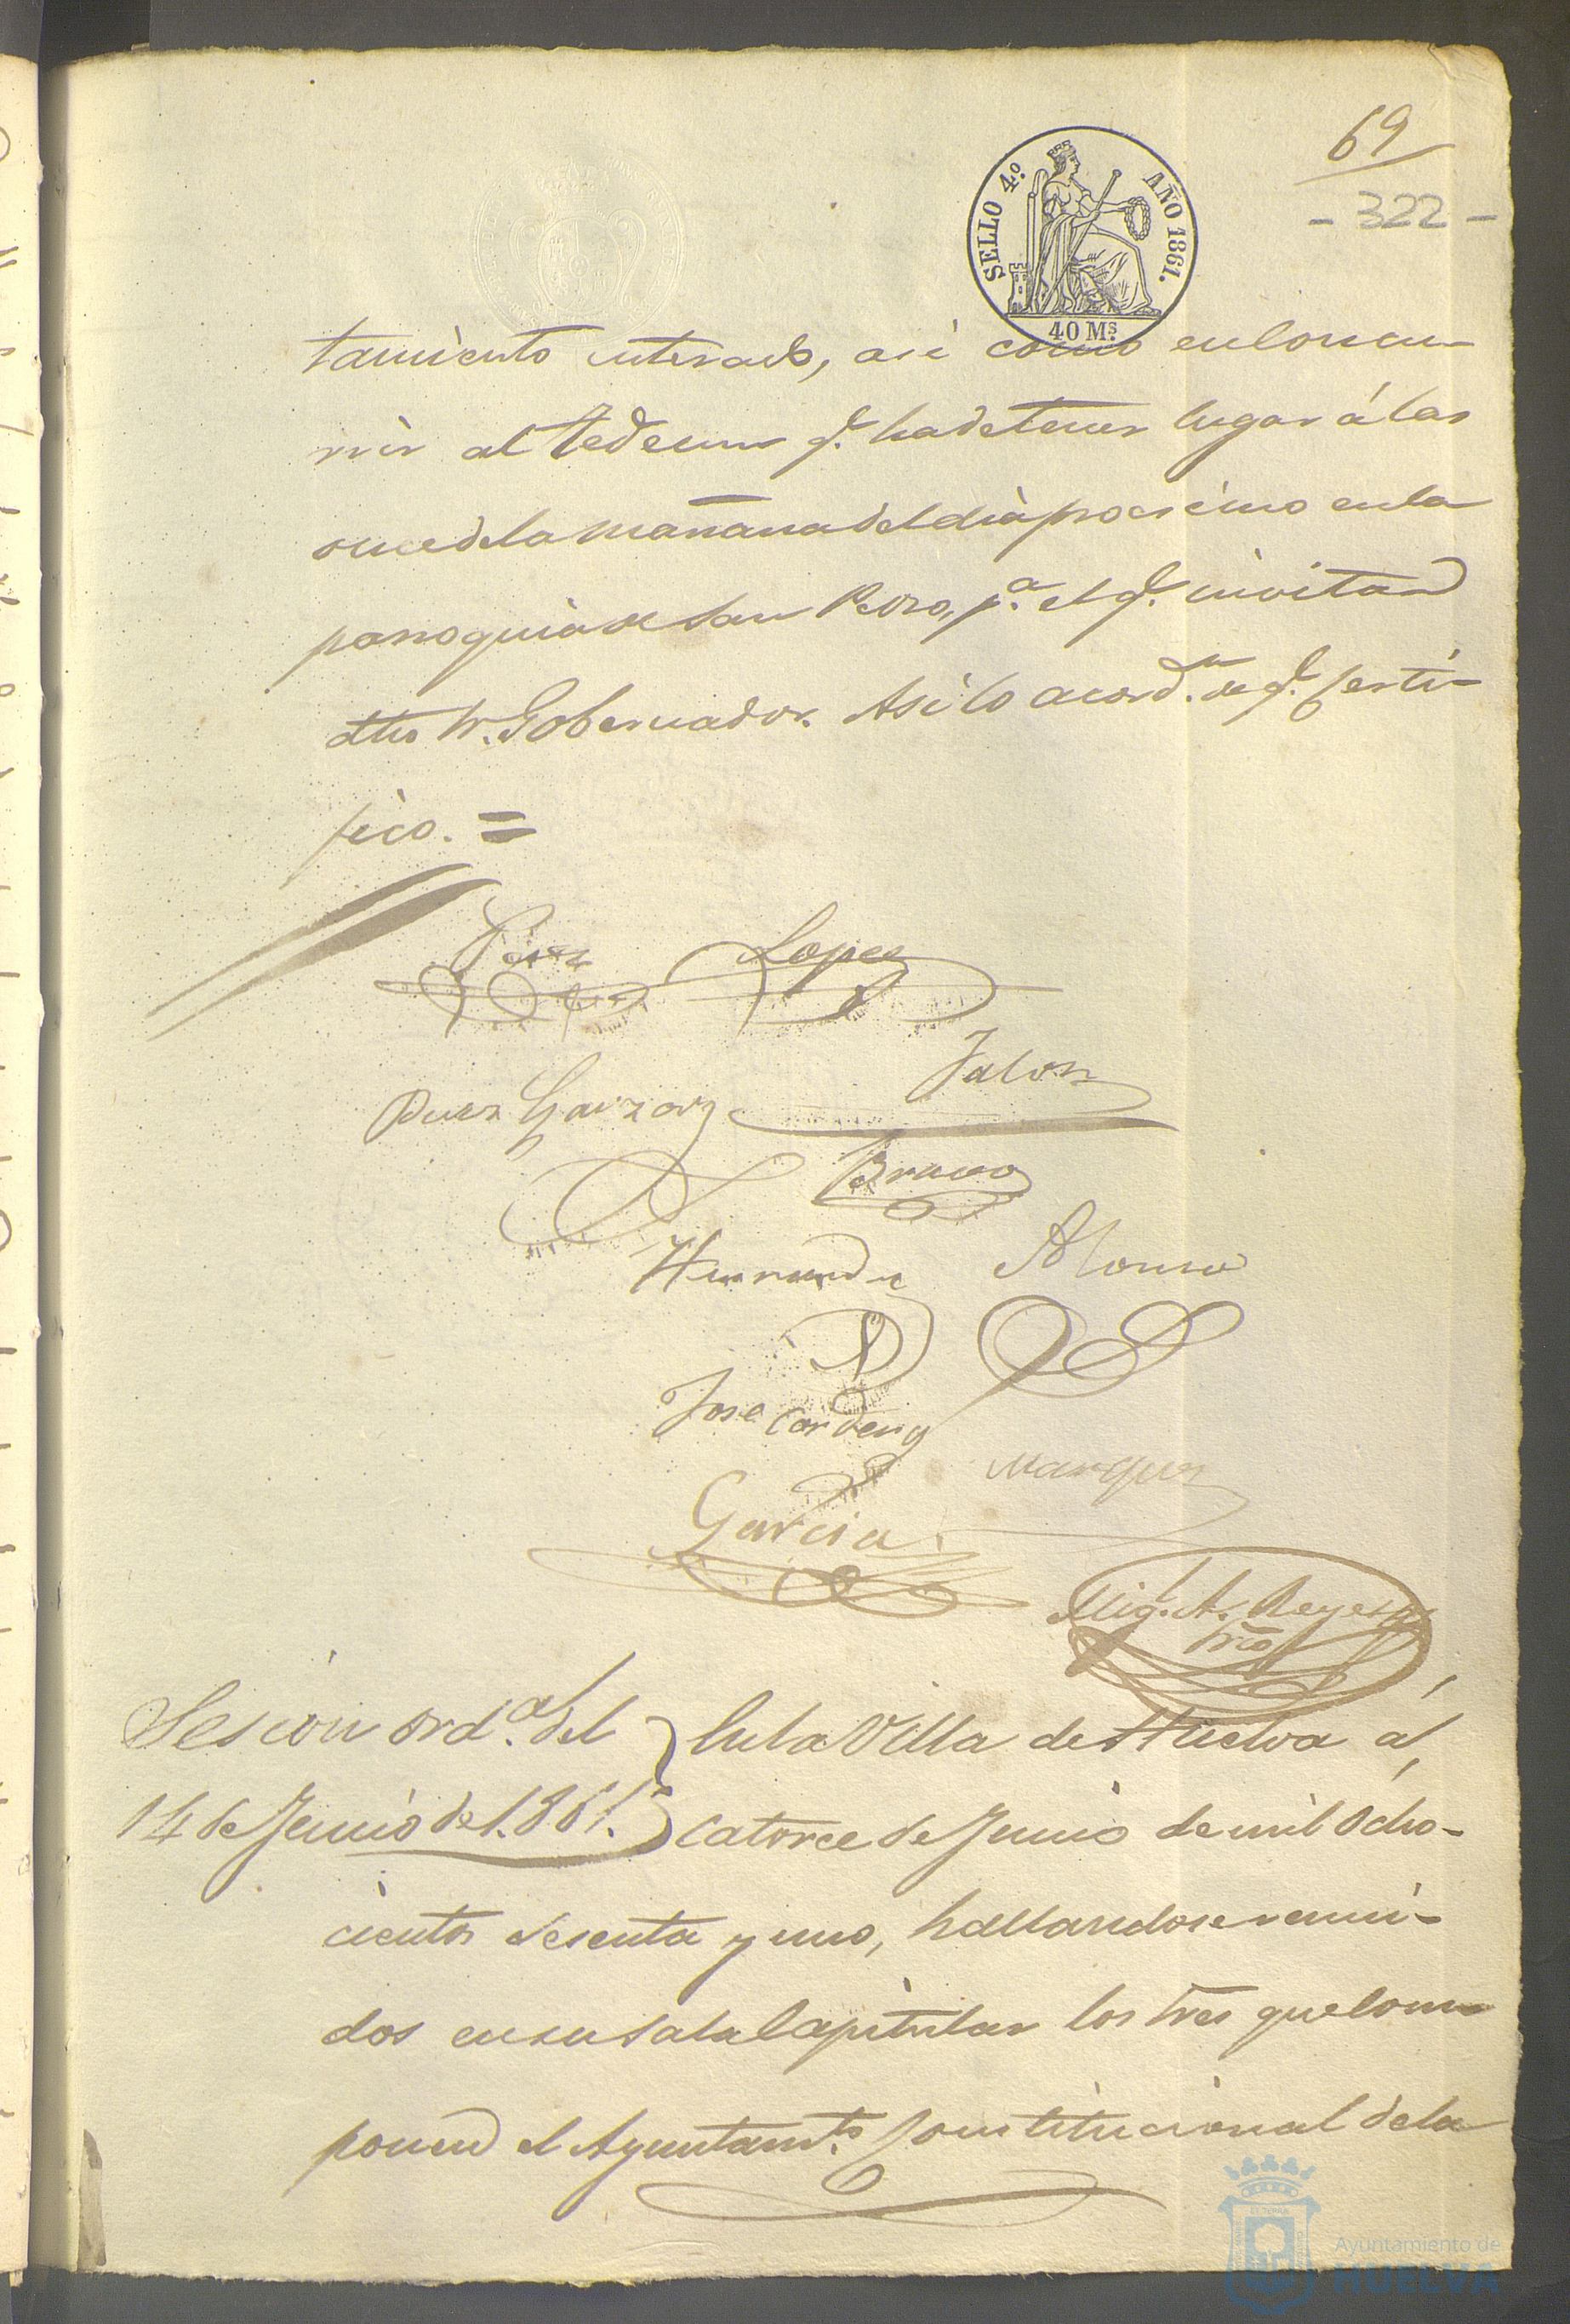 69
- 322 -
SELLO 4.º AÑO 1861.
40 M.s
tamiento enterado, asi como en concu-
rrir al Tedeum q.e ha de tener lugar á las
once de la mañana del dia procsimo en la
parroquia de San Pedro, p.a el q.e invitan
dho Sr. Gobernador. Asi lo acord.n de q.e certi-
fico. =
Perez Lopez
Jalon
Garzon
Bravo
Hernandez Alonso
Jose Cordeny
Marquez
Garcia
Mig.l A. Reyes
Srio
Sesion ord.a del
14 de Junio de 1.861.
En la Villa de Huelva á
catorce de Junio de mil ocho-
cientos sesenta y uno, hallandose reuni-
dos en su Sala Capitular los Sres que com-
ponen el Ayuntam.to Constitucional de la
Ayuntamiento de
HUELVA